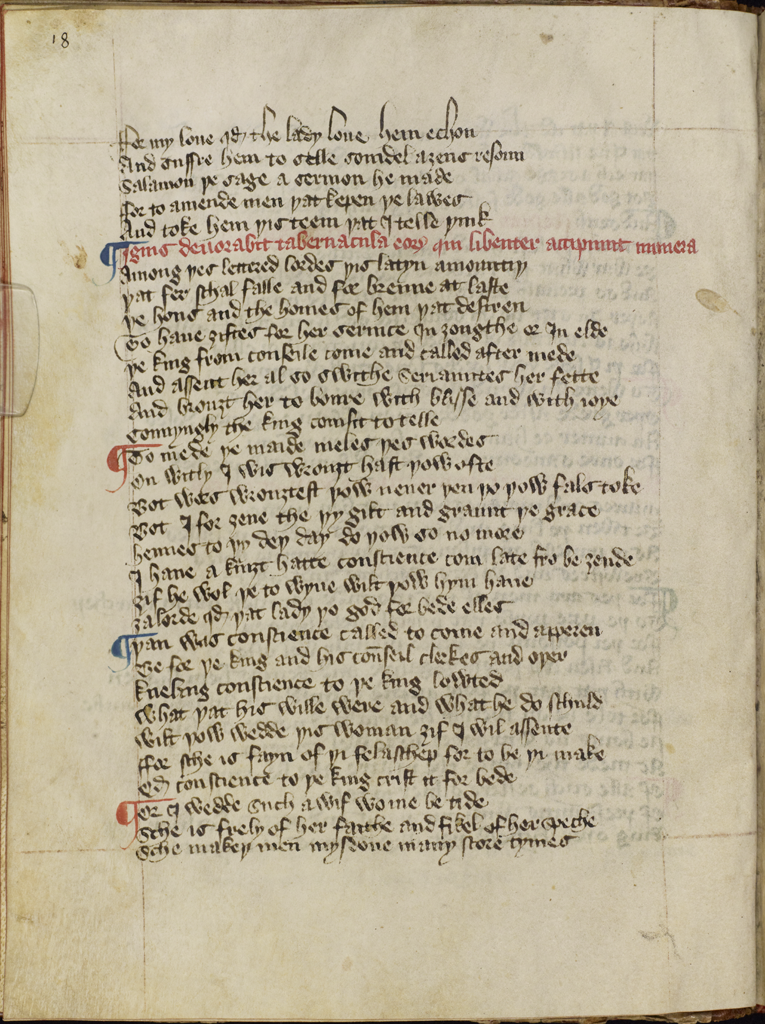 18
For my loue qd the lady loue hem echon
And suffre hem to selle somdel aȝens resoun
Salamon þe sage a sermon he made
For to amende men þat kepen þe lawes
And toke hem þis teem þat I telle þink
Ignis deuorabit tabernacula eorꝝ qui libenter accipiunt munera
Among þes lettered lordes þis latyn amountiþ
þat fer schal falle and for brenne at laste
þe hous and the homes of hem þat desiren
To haue ȝiftes for her seruice In ȝongthe or In elde
þe king from conseile come and called after mede
And assent her al so swithe seriauntes her fette
And brouȝt her to boure with blisse and with ioye
Connyngly the king comsit to telle
To mede þe maide meles þes wordes
On witly I wis wrouȝt hast þow ofte
Bot wers wrouȝtest þow neuer þen þo þow fals toke
Bot I for ȝeue the þy gilt and graunt þe grace
hennes to þy deþ day do þow so no more
I haue a kniȝt hatte conscience com late fro be ȝende
ȝif he wol þe to wyue wilt þow hym haue
ȝa lorde qd þat lady þo god for bede elles
þan was conscience called to come and apperen
Be for þe king and his conseil clerkes and oþer
kneling conscience to þe king lowted
What þat his wille were and what he do schuld
wilt þow wedde þis woman ȝif I wil assente
For sche is fayn of þi felaschep for to be þi make
Qd conscience to þe king crist it for bede
Or I wedde such a wif wo me be tide
Sche is frely of her faithe and fikel of her speche
Sche makeþ men mysdoue many score tymes